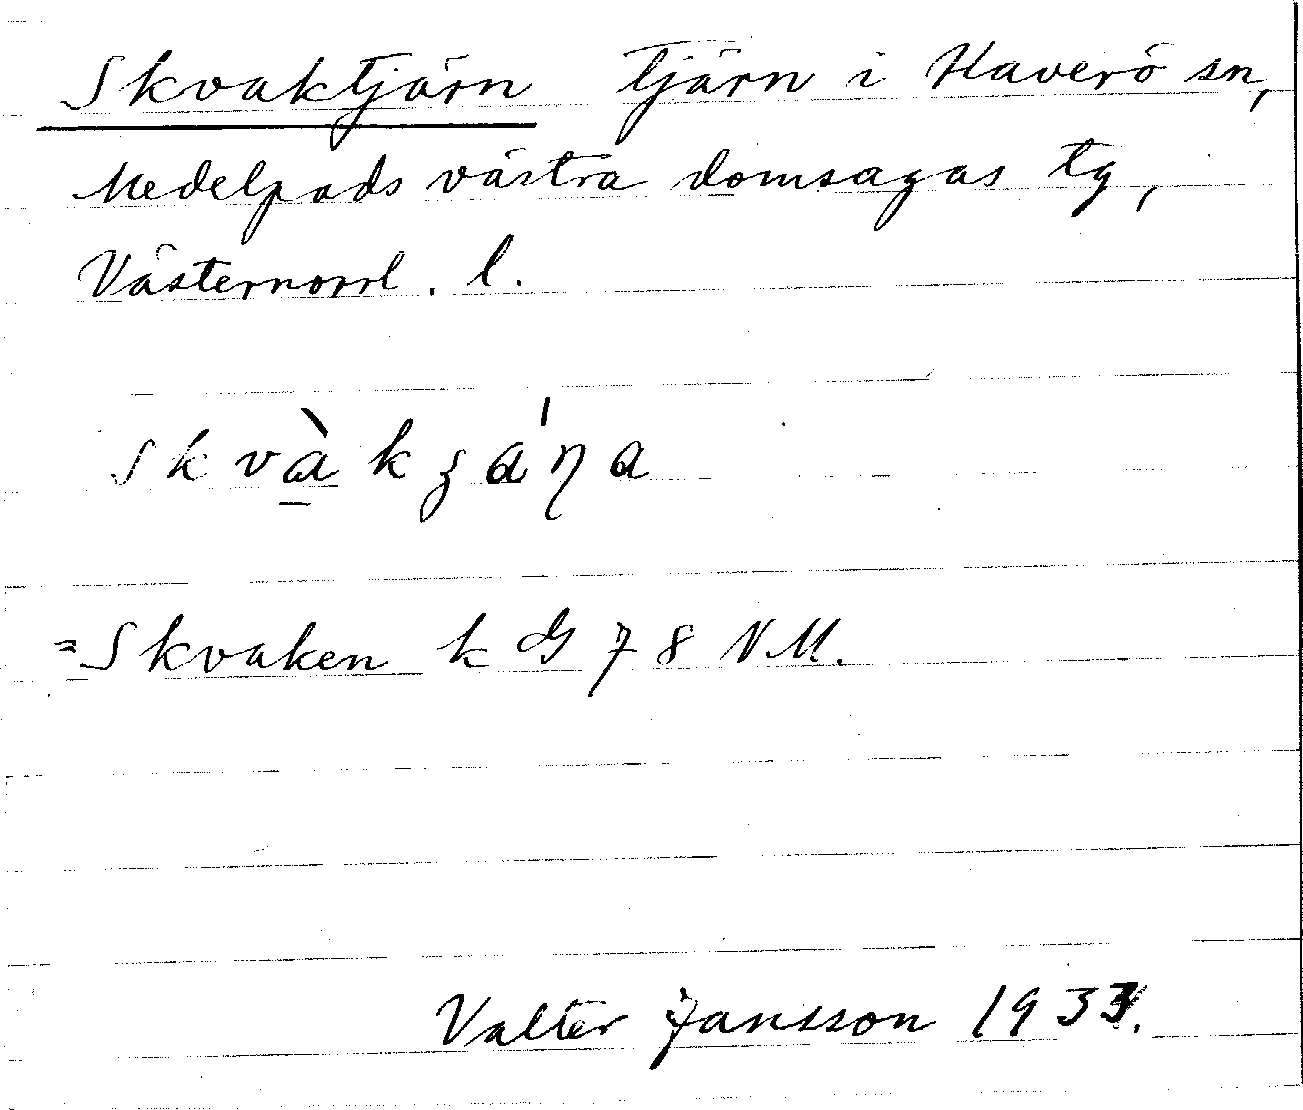 Skvaktjärn tjärn i Haverö sn,
Medelpads västra domsagas tg,
Västernorrl. l.
skvàkʒáŋa
=Skvaken k G 78 NM.
Valter Jansson 1933.